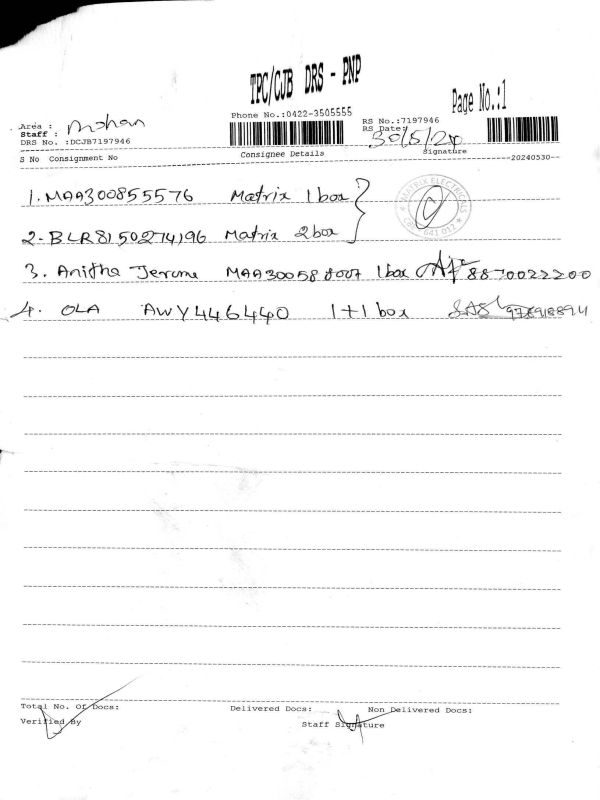 TPC/CJB DRS - PNP
Page No.:1
Area :
Staff : Mohan
DRS No. :DCJB7197946
Phone No.:0422-3505555
RS No.:7197946
RS Date: 30/5/24
S No Consignment No
Consignee Details
Signature
20240530
1. MAA300855576 Matrix 1 box
MATRIX ELECTRICALS
641 012
2. BLR8150274196 Matrix 2 box
3. Anitha Jerome MAA300588007 1 box 8870022200
4. OLA AWY446440 1+1 box
Total No. Of Docs:
Delivered Docs:
Non Delivered Docs:
Verified By
Staff Signature